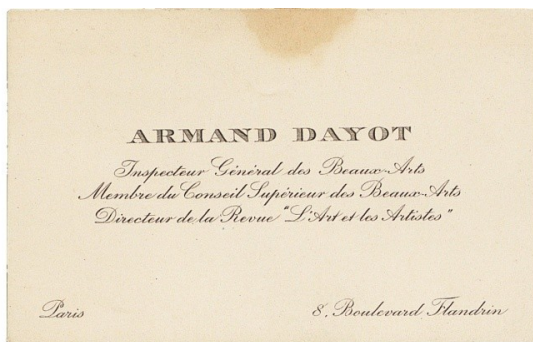 ARMAND DAYOT
Inspecteur Général des Beaux-Arts
Membre du Conseil Supérieur des Beaux-Arts
Directeur de la Revue "L'Art et les Artistes"
Paris
8. Boulevard Flandrin